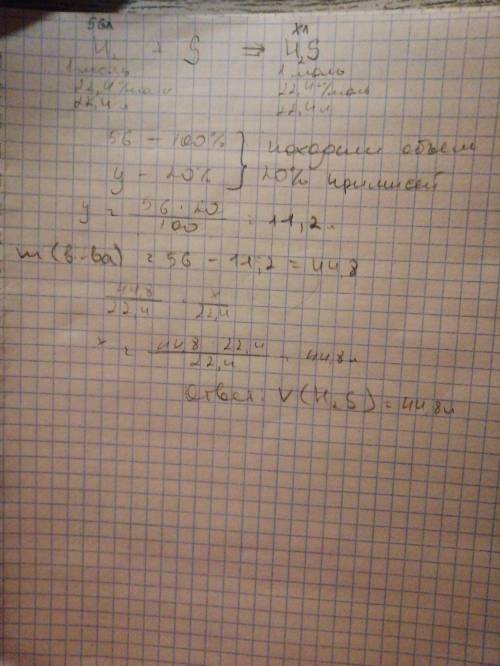 56л хл
H₂ + S ⇒ H₂S
1 моль 1 моль
22,4 л/моль 22,4 л/моль
22,4 л 22,4 л
56 – 100% } находим объем
y – 20% } 20% примисей
y = 56 · 20 / 100 = 11,2 л
m (в-ва) = 56 – 11,2 = 44,8
44,8 / 22,4 = x / 22,4
x = 44,8 · 22,4 / 22,4 = 44,8 л
Ответ: V (H₂S) = 44,8 л